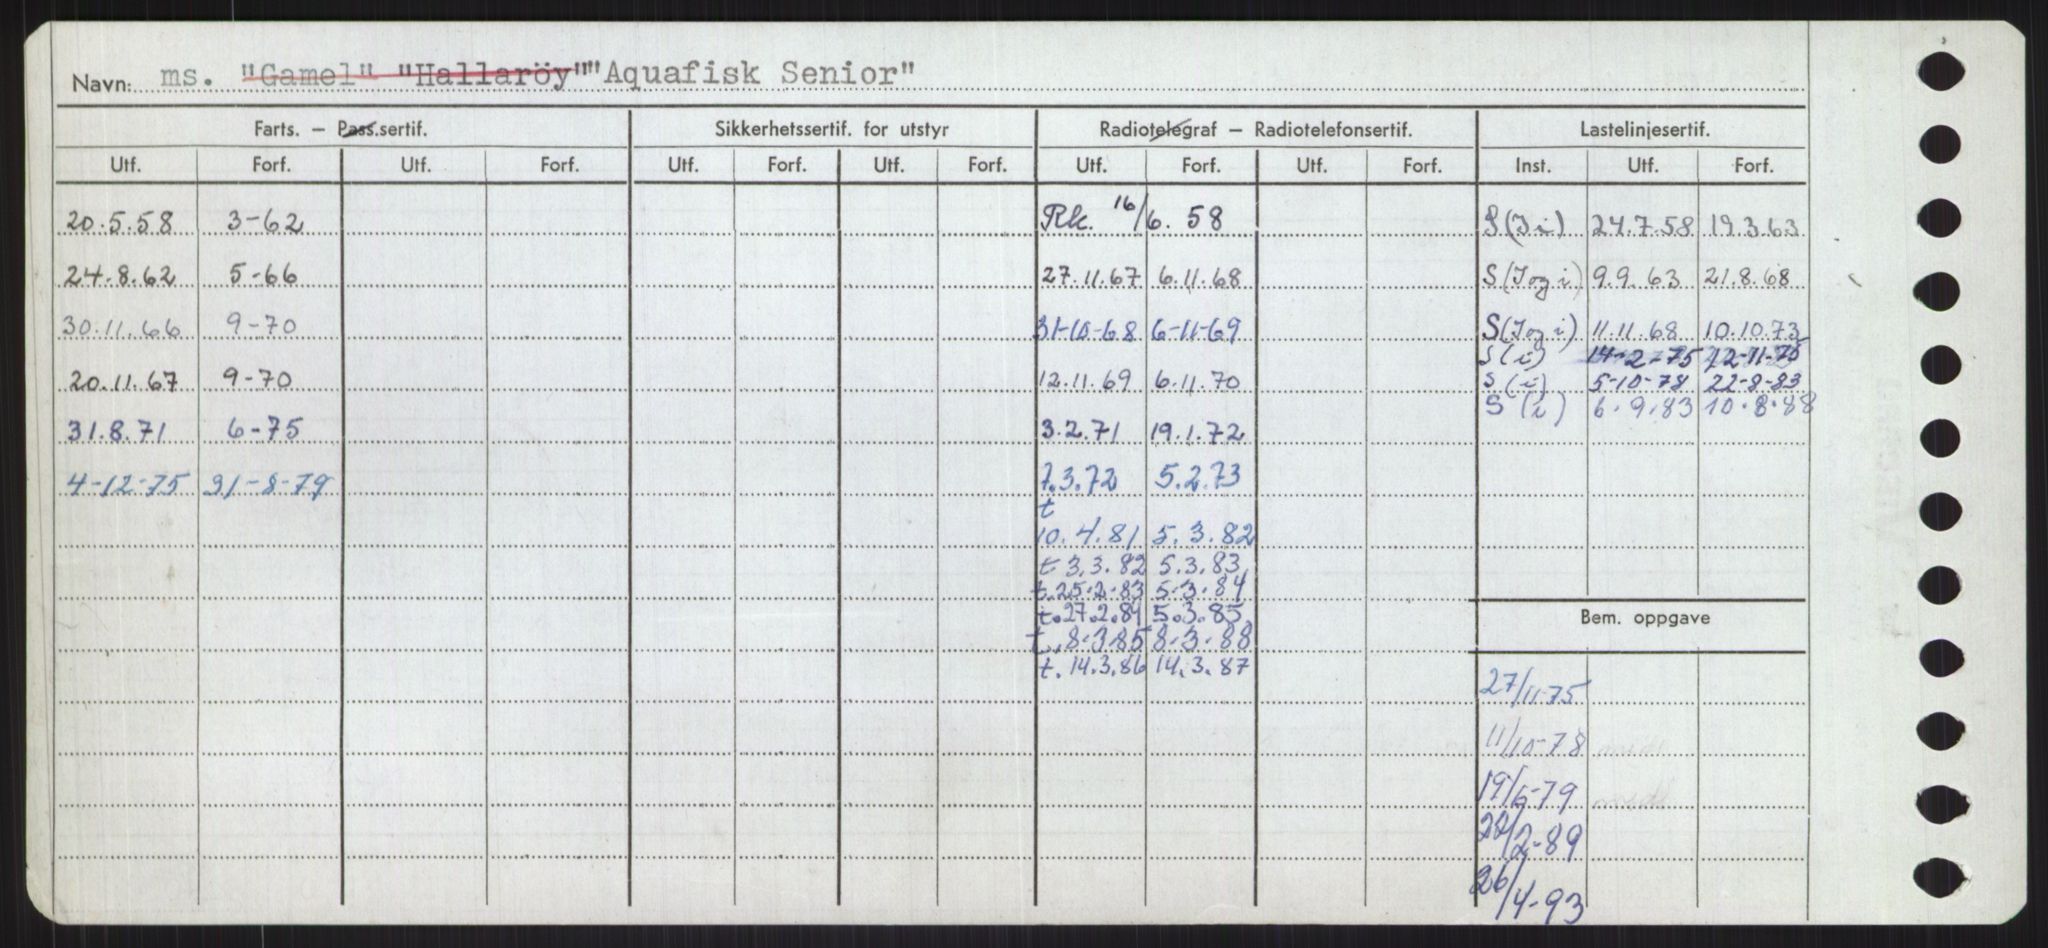 Navn: ms. "Gamel" "Hallaröy" "Aquafisk Senior"
Farts. — Pass.sertif. Sikkerhetssertif. for utstyr Radiotelegraf — Radiotelefonsertif. Lastelinjesertif.
Utf. Forf. Utf. Forf. Utf. Forf. Utf. Forf. Utf. Forf. Utf. Forf. Inst. Utf. Forf.
20.5.58 3-62 Rk. 16/6. 58 S(I i) 24.7.58 19.3.63
24.8.62 5-66 27.11.67 6.11.68 S(I og i) 9.9.63 21.8.68
30.11.66 9-70 31-10-68 6-11-69 S(I og i) 11.11.68 10.10.73
S(i) 14-2-75 12-11-75
20.11.67 9-70 12.11.69 6.11.70 S(i) 5-10-78 22-8-83
S(i) 6.9.83 10.8.88
31.8.71 6-75 3.2.71 19.1.72
4-12-75 31-8-79 7.3.72 5.2.73
t
10.4.81 5.3.82
t 3.3.82 5.3.83
t.25.2.83 5.3.84
t.27.2.84 5.3.85
t.8.3.85 8.3.88
t.14.3.86 14.3.87
Bem. oppgave
27/11-75
11/10-78 midl
19/6-79 midl
22/2-89
26/4-93